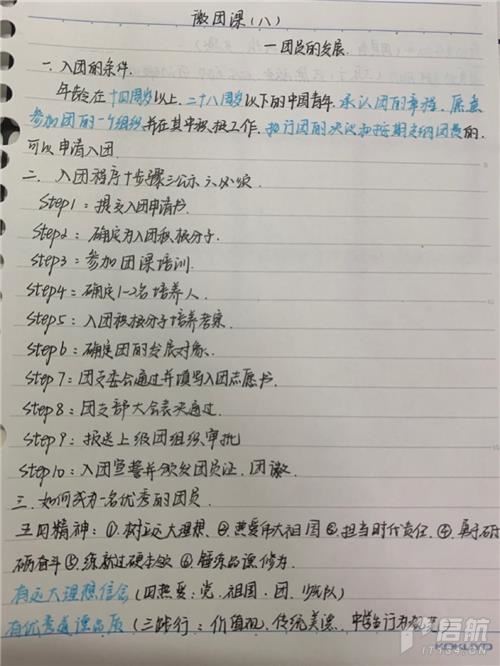 微团课(八)
—团员的发展
一. 入团的条件.
年龄在十四周岁以上. 二十八周岁以下的中国青年. 承认团的章程. 愿意
参加团的一个组织并在其中积极工作. 执行团的决议和按期交纳团费的.
可以申请入团
二. 入团程序十步骤三公示六必须.
Step1:提交入团申请书.
Step2:确定为入团积极分子.
Step3:参加团课培训.
Step4:确定1-2名培养人.
Step5:入团积极分子培养考察.
Step6:确定团的发展对象.
Step7:团支委会通过并填写入团志愿书.
Step8:团支部大会表决通过.
Step9:报送上级团组织审批
Step10:入团宣誓并颁发团员证. 团徽.
三. 如何成为一名优秀的团员.
五四精神:①.树立远大理想. ②.热爱伟大祖国 ③.担当时代责任. ④.勇于砥
砺奋斗 ⑤.练就过硬本领 ⑥.锤炼品德修为.
有远大理想信念(四热爱:党. 祖国. 团. 少队)
有优秀道德品质(三践行:价值观. 传统美德. 中学生行为规范
启航
IT164.CN
KOKUYO